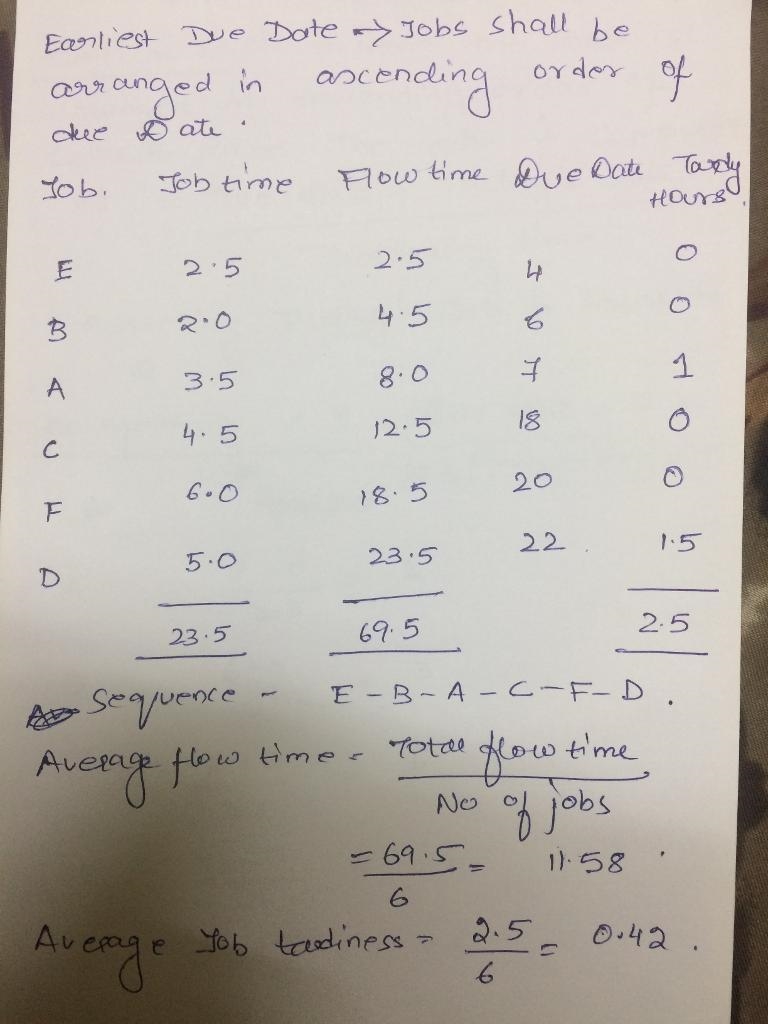 Earliest Due Date → Jobs shall be
arranged in ascending order of
due Date.
Job. Job time Flow time Due Date Tardy Hours.
E 2.5 2.5 4 0
B 2.0 4.5 6 0
A 3.5 8.0 7 1
C 4.5 12.5 18 0
F 6.0 18.5 20 0
D 5.0 23.5 22 1.5
23.5 69.5 2.5
Sequence - E - B - A - C - F - D.
Average flow time = Total flow time
No of jobs
= 69.5 = 11.58
6
Average Job tardiness = 2.5 = 0.42.
6